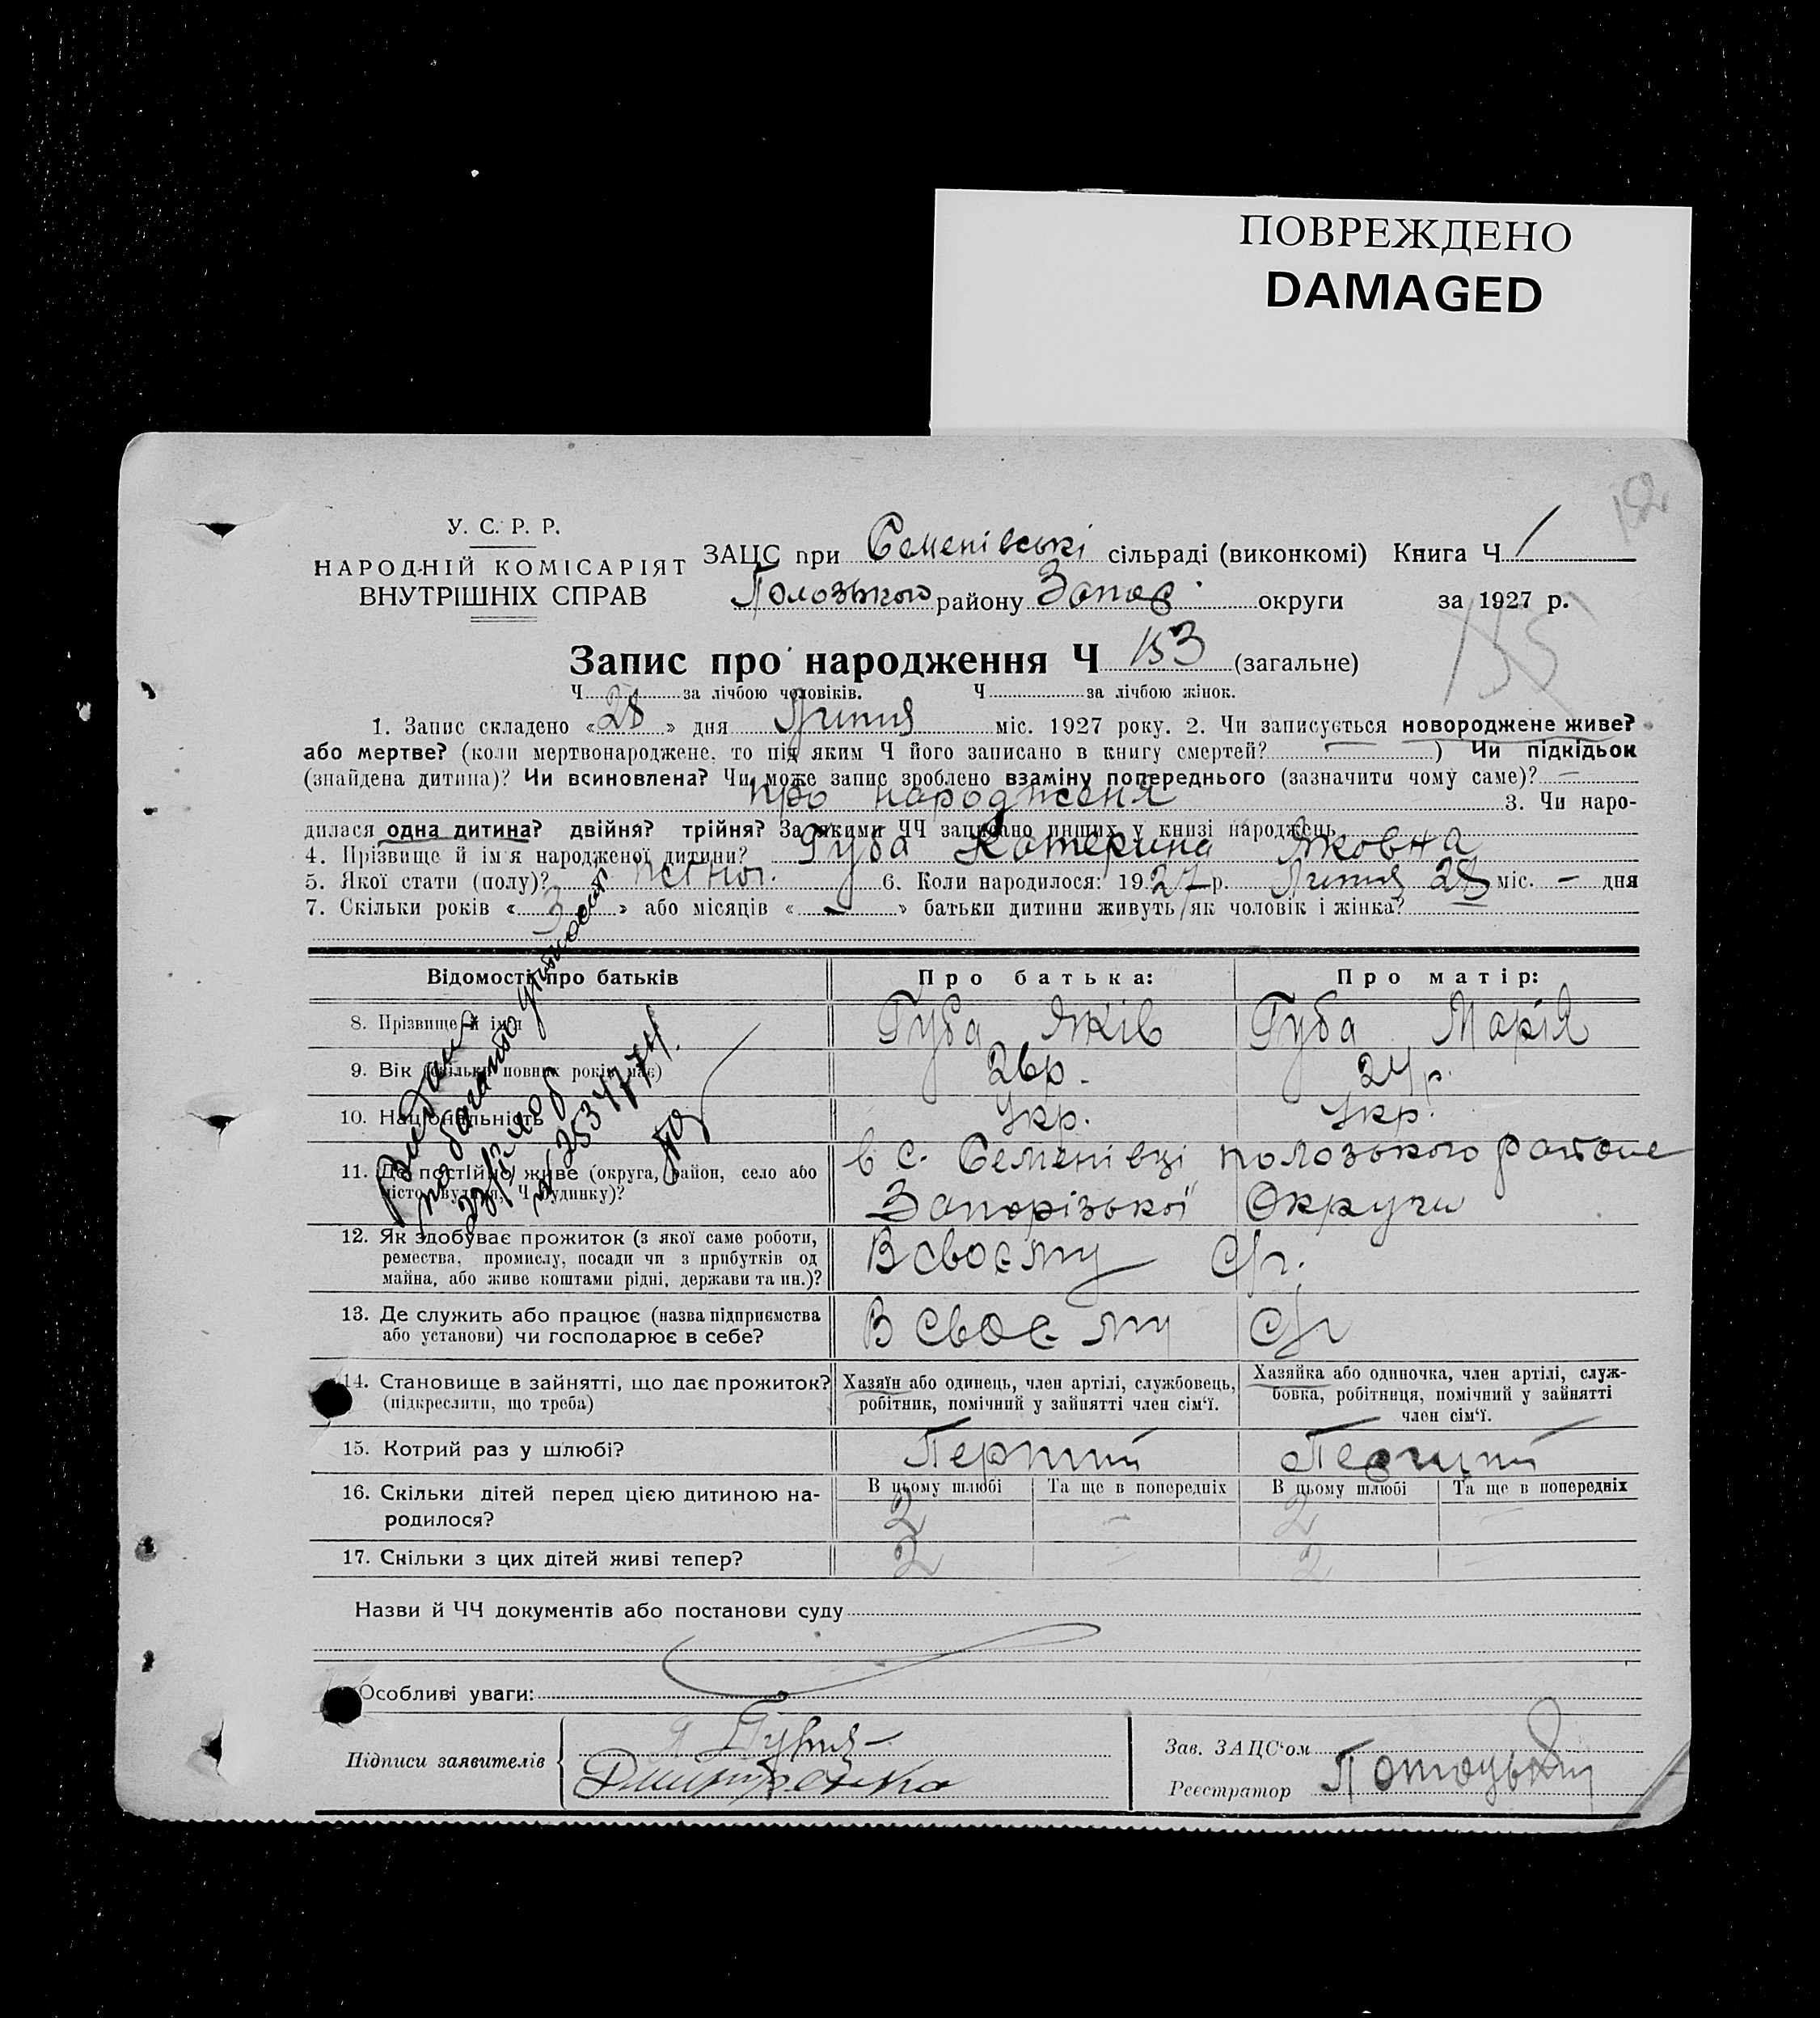 ПОВРЕЖДЕНО
DAMAGED
У. С. Р. Р.
НАРОДНІЙ КОМІСАРІЯТ
ВНУТРІШНІХ СПРАВ
ЗАЦС при Семенівські сільраді (виконкомі) Книга Ч 1
Полозького району Запор. округи за 1927 р.
155
Запис про народження Ч 153 (загальне)
Ч за лічбою чоловіків. Ч за лічбою жінок.
1. Запис складено «28» дня Липня міс. 1927 року. 2. Чи записується новороджене живе?
або мертве? (коли мертвонароджене, то під яким Ч його записано в книгу смертей? —) Чи підкідьок
(знайдена дитина)? Чи всиновлена? Чи може запис зроблено взаміну попереднього (зазначити чому саме)? —
про народженя 3. Чи наро-
дилася одна дитина? двійня? трійня? За якими ЧЧ записано инших у книзі народжень
4. Прізвище й ім'я народженої дитини? Губа Катерина Яковна
5. Якої стати (полу)? 6. Коли народилося: 1927 р. Липня 28 міс. — дня
7. Скільки років «3» або місяців «—» батьки дитини живуть як чоловік і жінка?
Відомості про батьків Про батька: Про матір:
8. Прізвище й ім'я Губа Яків Губа Марія
9. Вік (скільки повних років має) 26р. 24р.
10. Національність Укр. Укр.
11. Де постійно живе (округа, район, село або
місто, вулиця, Ч будинку)?
в с. Семенівці полозького району
Запорізької Округи
12. Як здобуває прожиток (з якої саме роботи,
ремества, промислу, посади чи з прибутків од
майна, або живе коштами рідні, держави та ин.)?
В своєму с/г.
13. Де служить або працює (назва підприємства
або установи) чи господарює в себе?
В своєму с/г
14. Становище в зайнятті, що дає прожиток?
(підкреслити, що треба)
Хазяїн або одинець, член артілі, службовець,
робітник, помічний у зайнятті член сім'ї.
Хазяйка або одиночка, член артілі, служ-
бовка, робітниця, помічний у зайнятті
член сім'ї.
15. Котрий раз у шлюбі? Перший Перший
16. Скільки дітей перед цією дитиною на-
родилося?
В цьому шлюбі Та ще в попередніх В цьому шлюбі Та ще в попередніх
2 — 2 —
17. Скільки з цих дітей живі тепер? 2 — 2 —
Назви й ЧЧ документів або постанови суду
Особливі уваги:
Підписи заявителів
Зав. ЗАЦС'ом
Реєстратор Потоцький